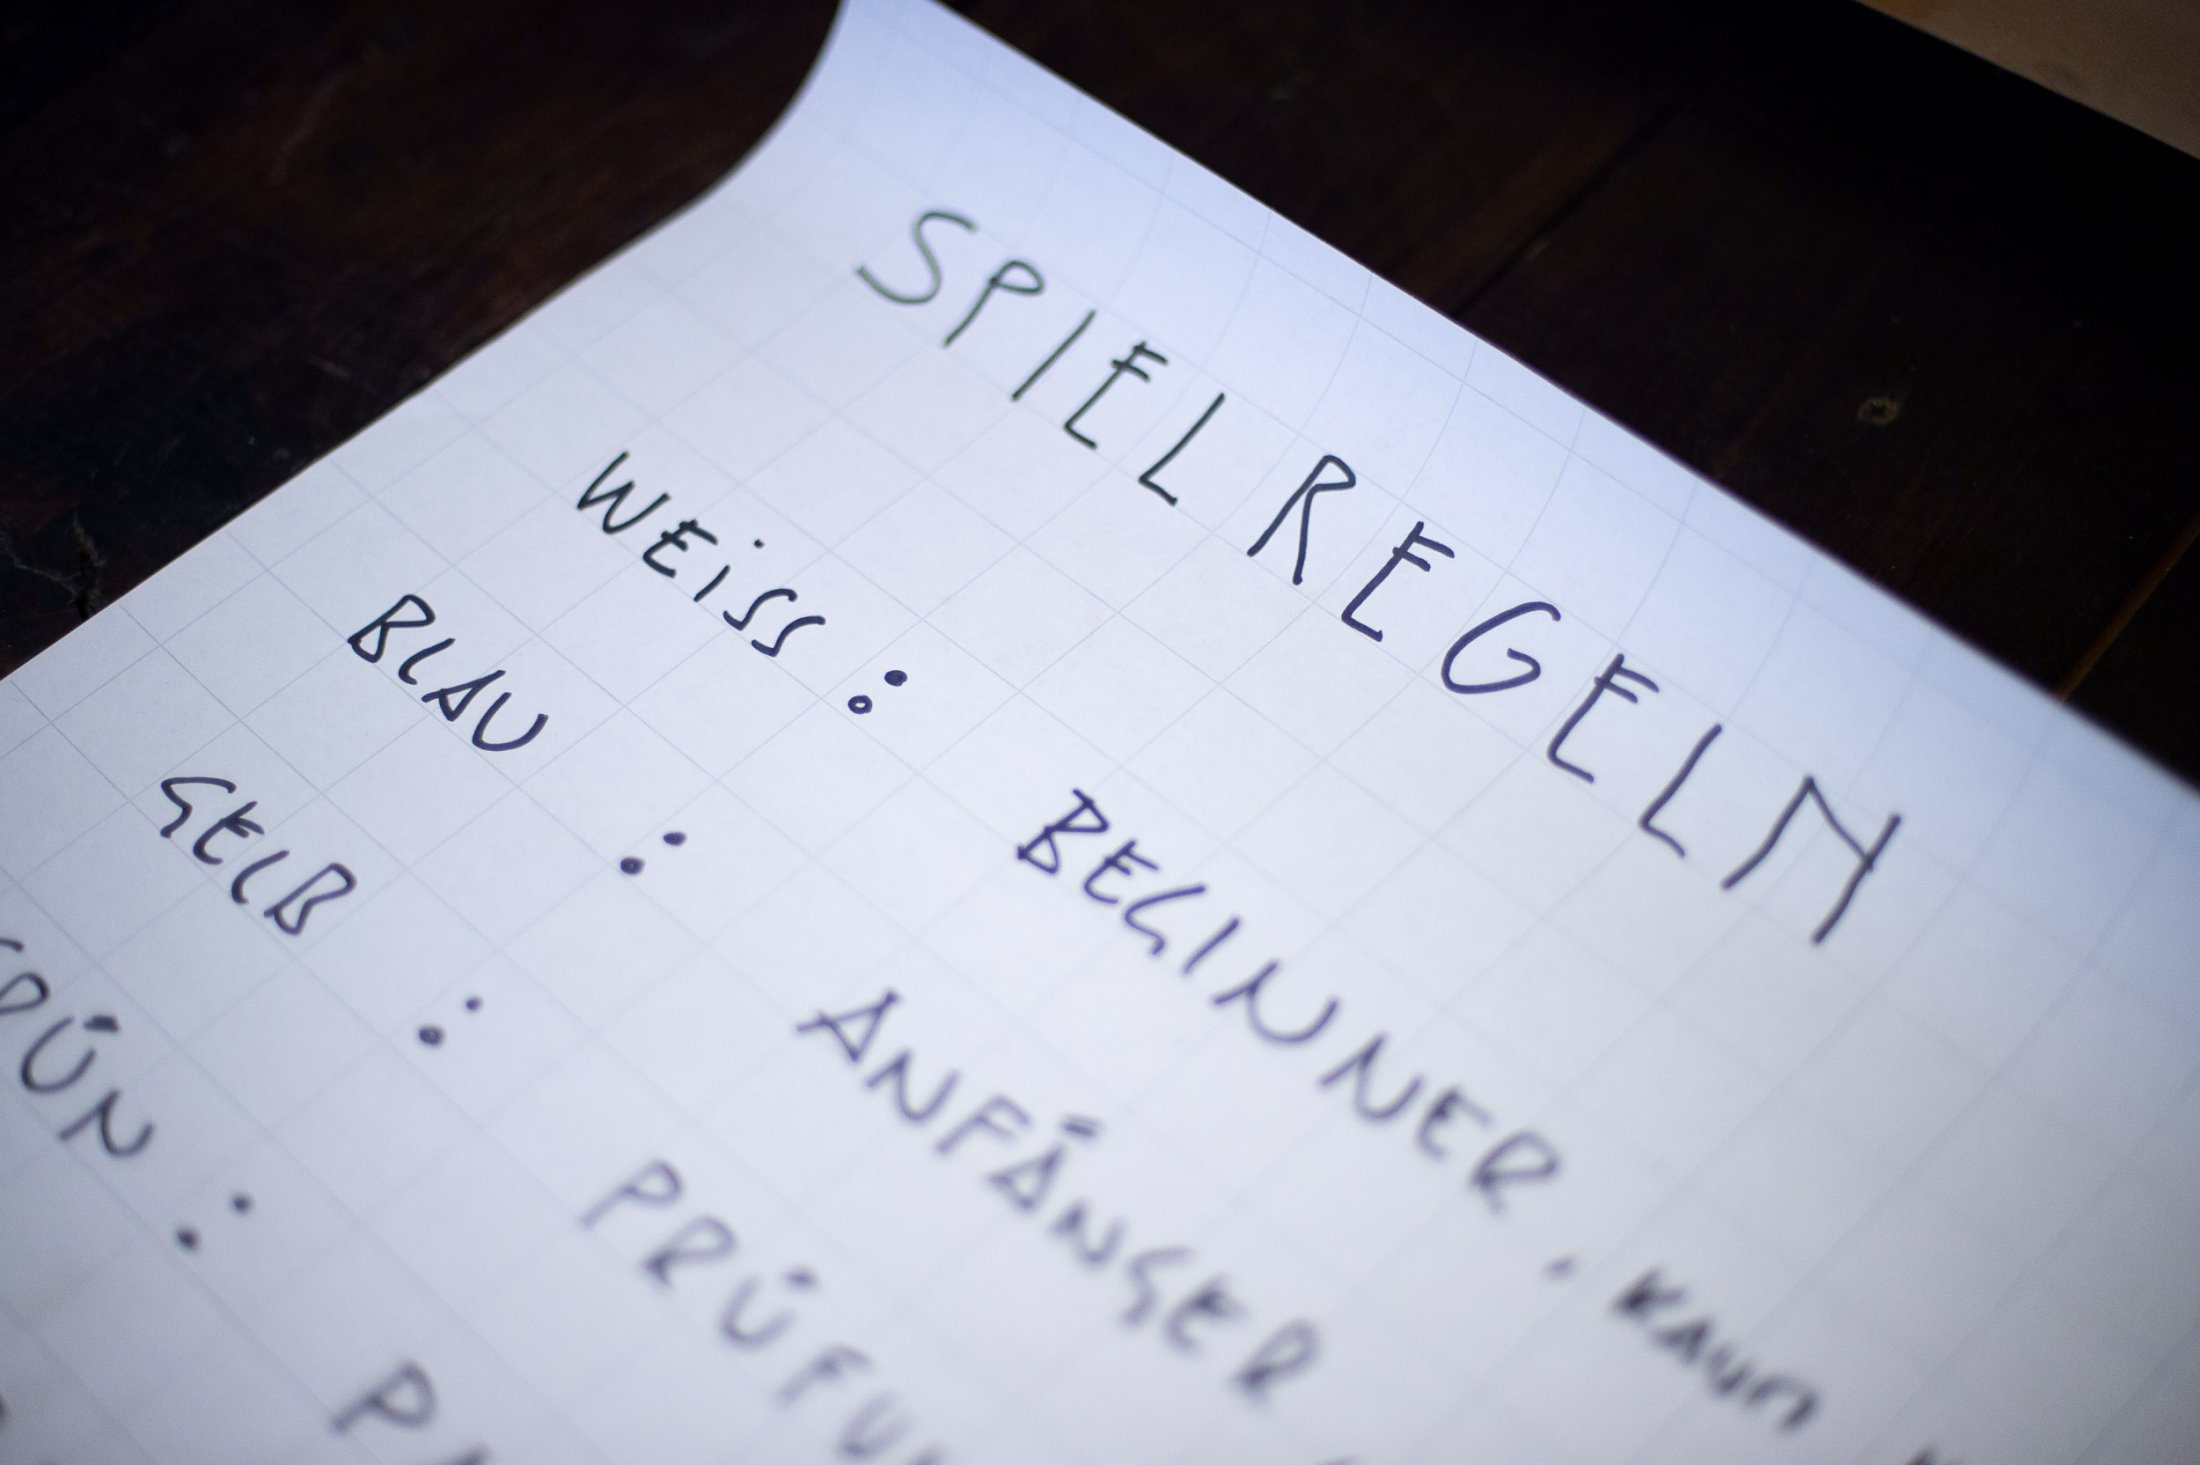 SPIELREGELN
WEiSS : BEGINNER, KAUM
BLAU : ANFÄNGER
GELB :